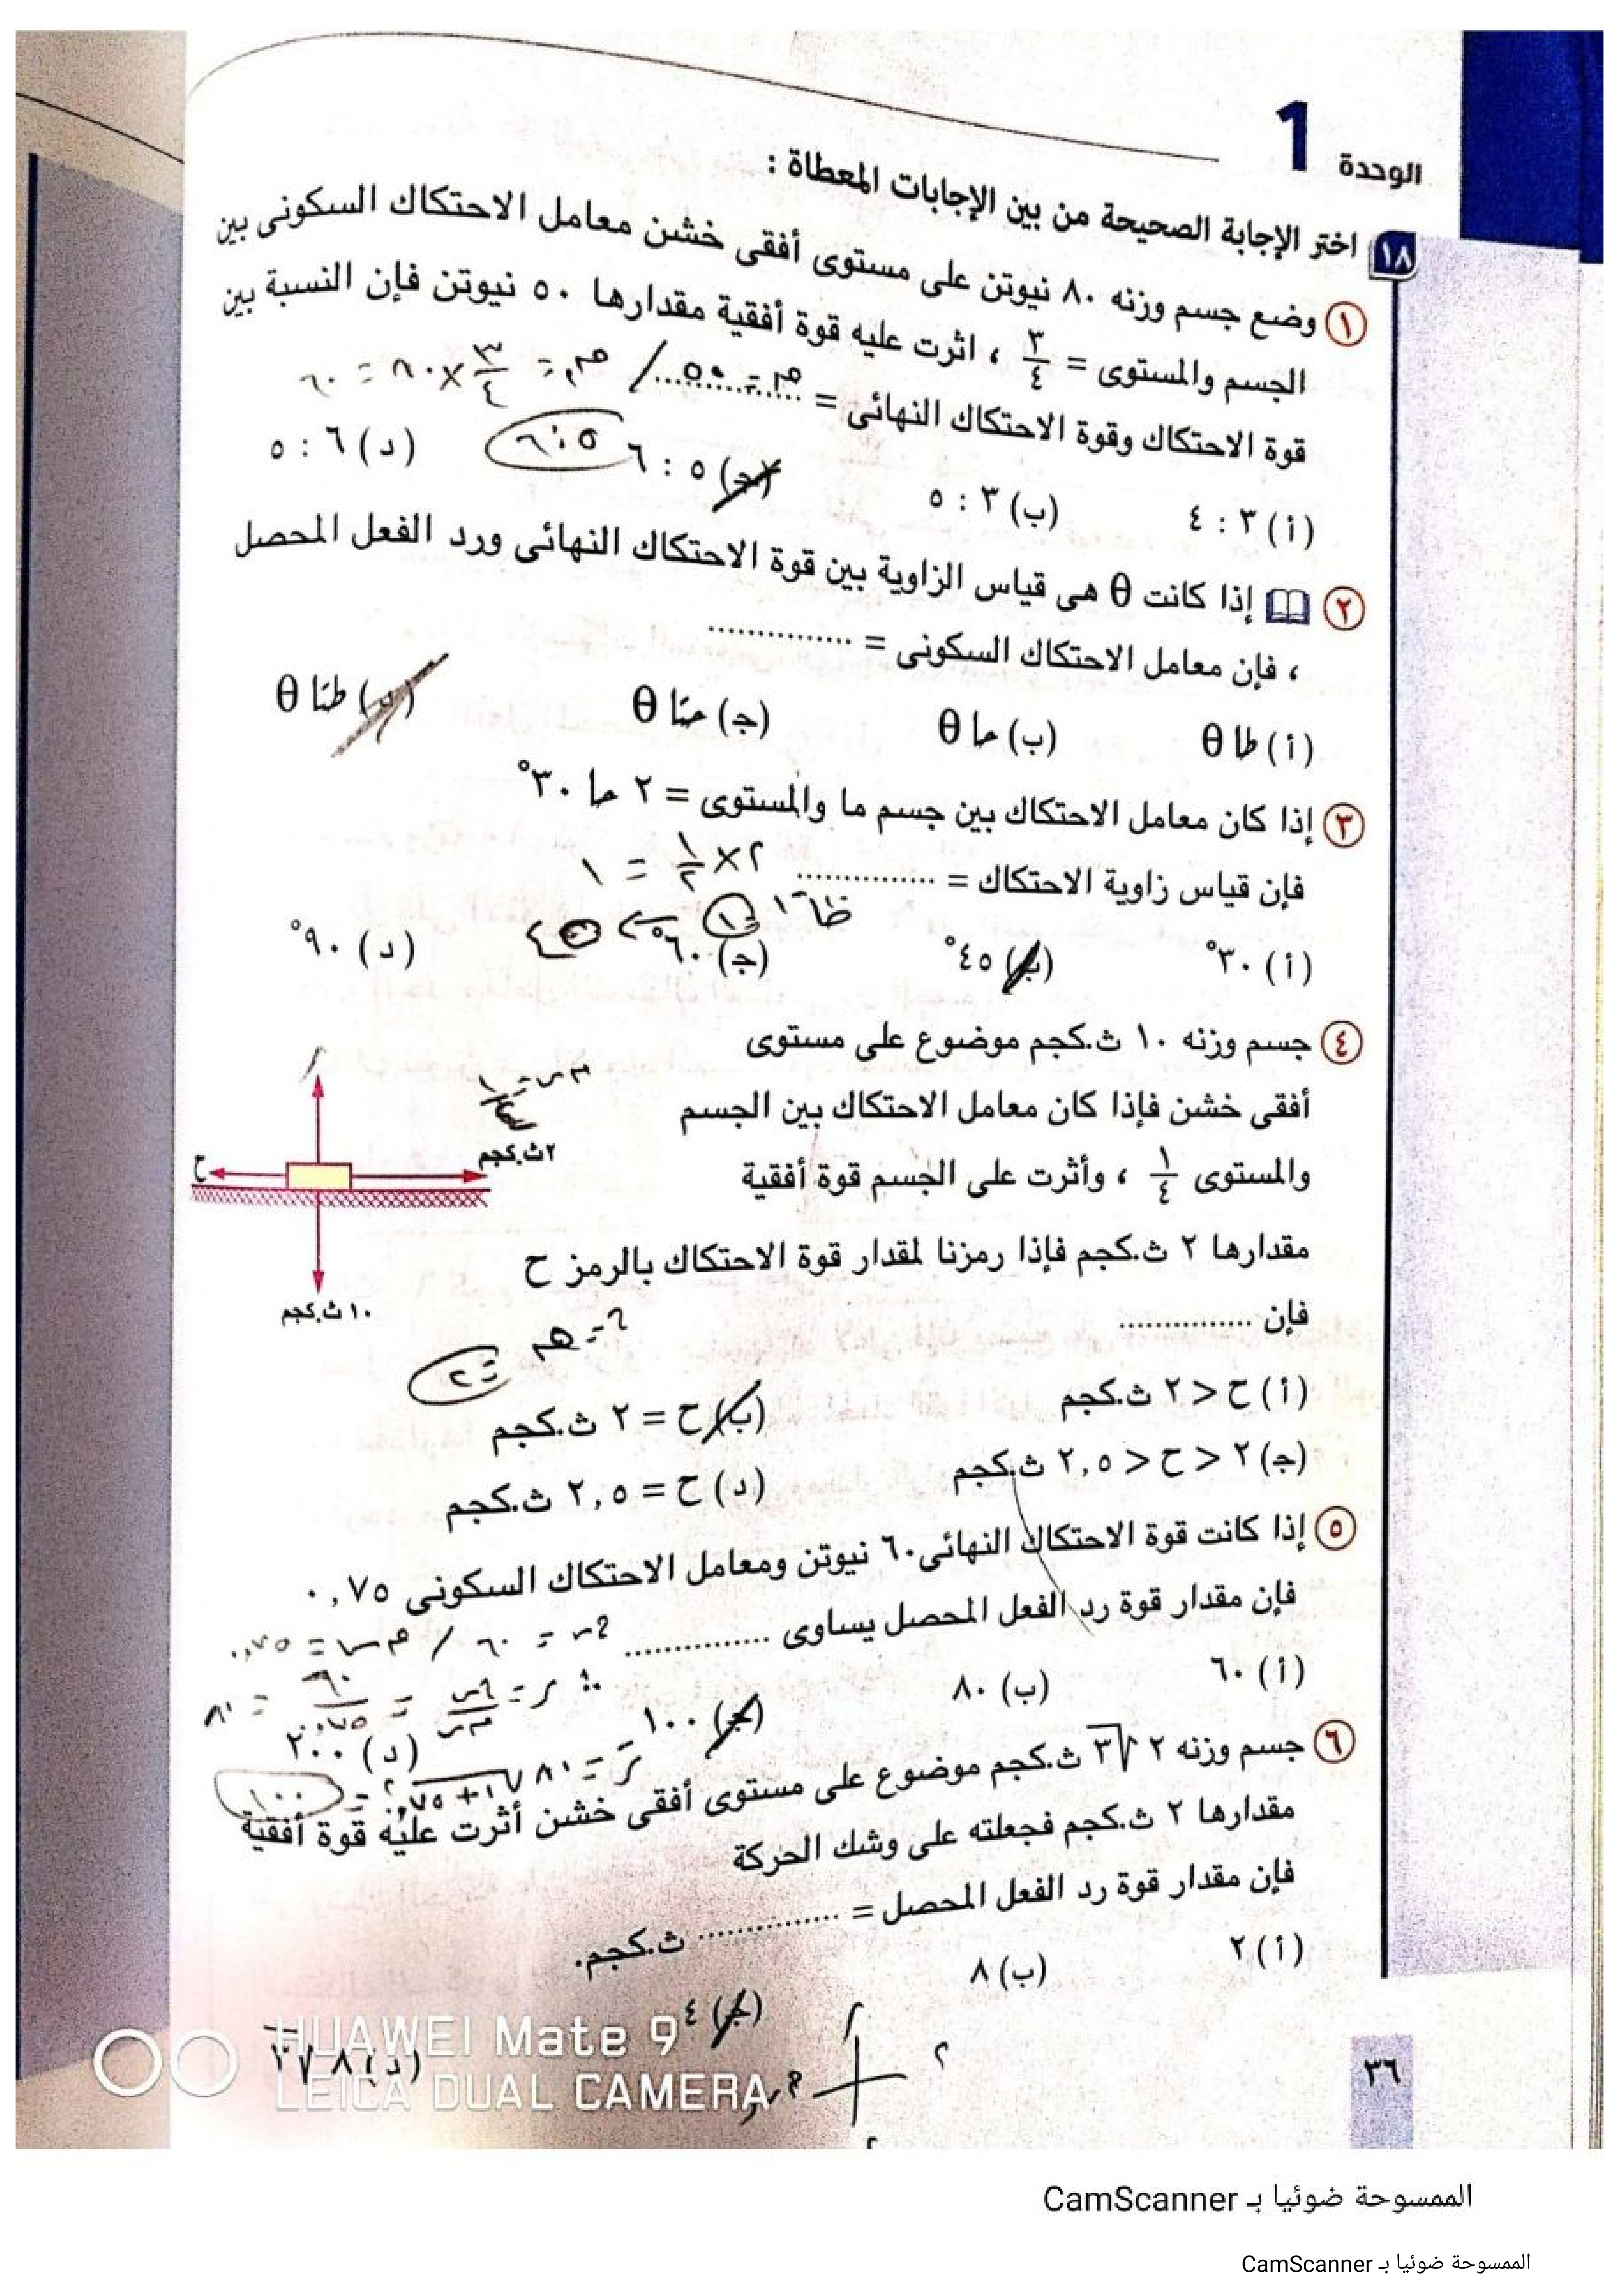 الوحدة 1
١٨ اختر الإجابة الصحيحة من بين الإجابات المعطاة :
١ وضع جسم وزنه ٨٠ نيوتن على مستوى أفقى خشن معامل الاحتكاك السكونى بين
الجسم والمستوى = ٣/٤ ، اثرت عليه قوة أفقية مقدارها ٥٠ نيوتن فإن النسبة بين
قوة الاحتكاك وقوة الاحتكاك النهائى = ...............
٥٠ / ٣/٤ × ٨٠ = ٦٠
(أ) ٣ : ٤ (ب) ٣ : ٥ (جـ) ٥ : ٦ (د) ٦ : ٥
٥ : ٦
٢ إذا كانت θ هى قياس الزاوية بين قوة الاحتكاك النهائى ورد الفعل المحصل
، فإن معامل الاحتكاك السكونى = ...............
(أ) طا θ (ب) حا θ (جـ) حتا θ (د) طتا θ
٣ إذا كان معامل الاحتكاك بين جسم ما والمستوى = ٢ حا ٣٠°
فإن قياس زاوية الاحتكاك = ...............
٢ × ١/٢ = ١
(أ) ٣٠° (ب) ٤٥° (جـ) ٦٠° (د) ٩٠°
٤ جسم وزنه ١٠ ث.كجم موضوع على مستوى
أفقى خشن فإذا كان معامل الاحتكاك بين الجسم
والمستوى ١/٤ ، وأثرت على الجسم قوة أفقية
مقدارها ٢ ث.كجم فإذا رمزنا لمقدار قوة الاحتكاك بالرمز ح
فإن ...............
ر
ح
٢ ث.كجم
١٠ ث.كجم
= ٢
(أ) ح < ٢ ث.كجم (ب) ح = ٢ ث.كجم
(جـ) ٢ < ح < ٢,٥ ث.كجم (د) ح = ٢,٥ ث.كجم
٥ إذا كانت قوة الاحتكاك النهائى ٦٠ نيوتن ومعامل الاحتكاك السكونى ٠,٧٥
فإن مقدار قوة رد الفعل المحصل يساوى ...............
(أ) ٦٠ (ب) ٨٠ (جـ) ١٠٠ (د) ٢٠٠
٦ جسم وزنه ٢ √٣ ث.كجم موضوع على مستوى أفقى خشن أثرت عليه قوة أفقية
مقدارها ٢ ث.كجم فجعلته على وشك الحركة
فإن مقدار قوة رد الفعل المحصل = ............... ث.كجم.
(أ) ٢ (ب) ٨ (جـ) ٤ (د) ٨ √٣
٣٦
HUAWEI Mate 9
LEICA DUAL CAMERA
الممسوحة ضوئيا بـ CamScanner
الممسوحة ضوئيا بـ CamScanner